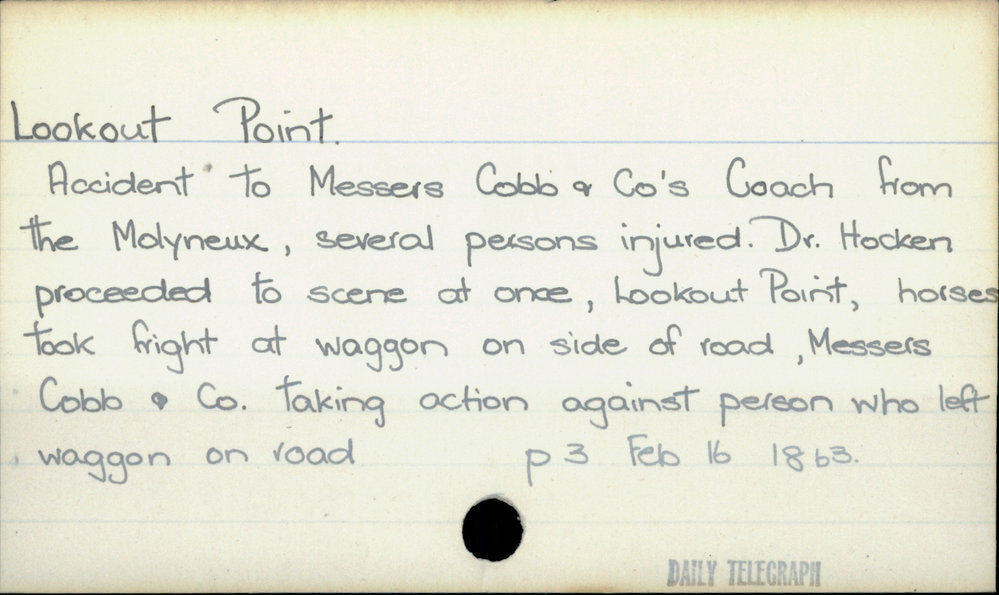 Lookout Point.
Accident to Messers Cobb & Co's Coach from
the Molyneux, several persons injured. Dr. Hocken
proceeded to scene at once, Lookout Point, horses
took fright at waggon on side of road, Messers
Cobb & Co. taking action against person who left
waggon on road p 3 Feb 16 1863.
DAILY TELEGRAPH